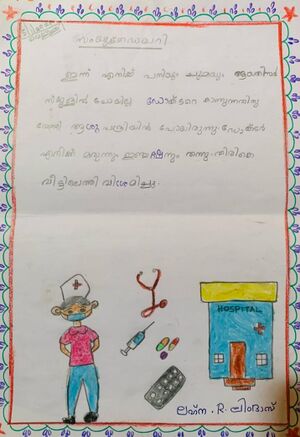 സംയുക്തഡയറി
ഇന്ന് എനിക്ക് പനിയും ചുമയും ആയതിനാൽ
സ്കൂളിൽ പോയില്ല ഡോക്ടറെ കാണുന്നതിനു
വേണ്ടി ആശുപത്രിയിൽ പോയിരുന്നു. ഡോക്ടർ
എനിക്ക് മരുന്നും ഇഞ്ചക്ഷനും തന്നു. തിരികെ
വീട്ടിലെത്തി വിശ്രമിച്ചു.
HOSPITAL